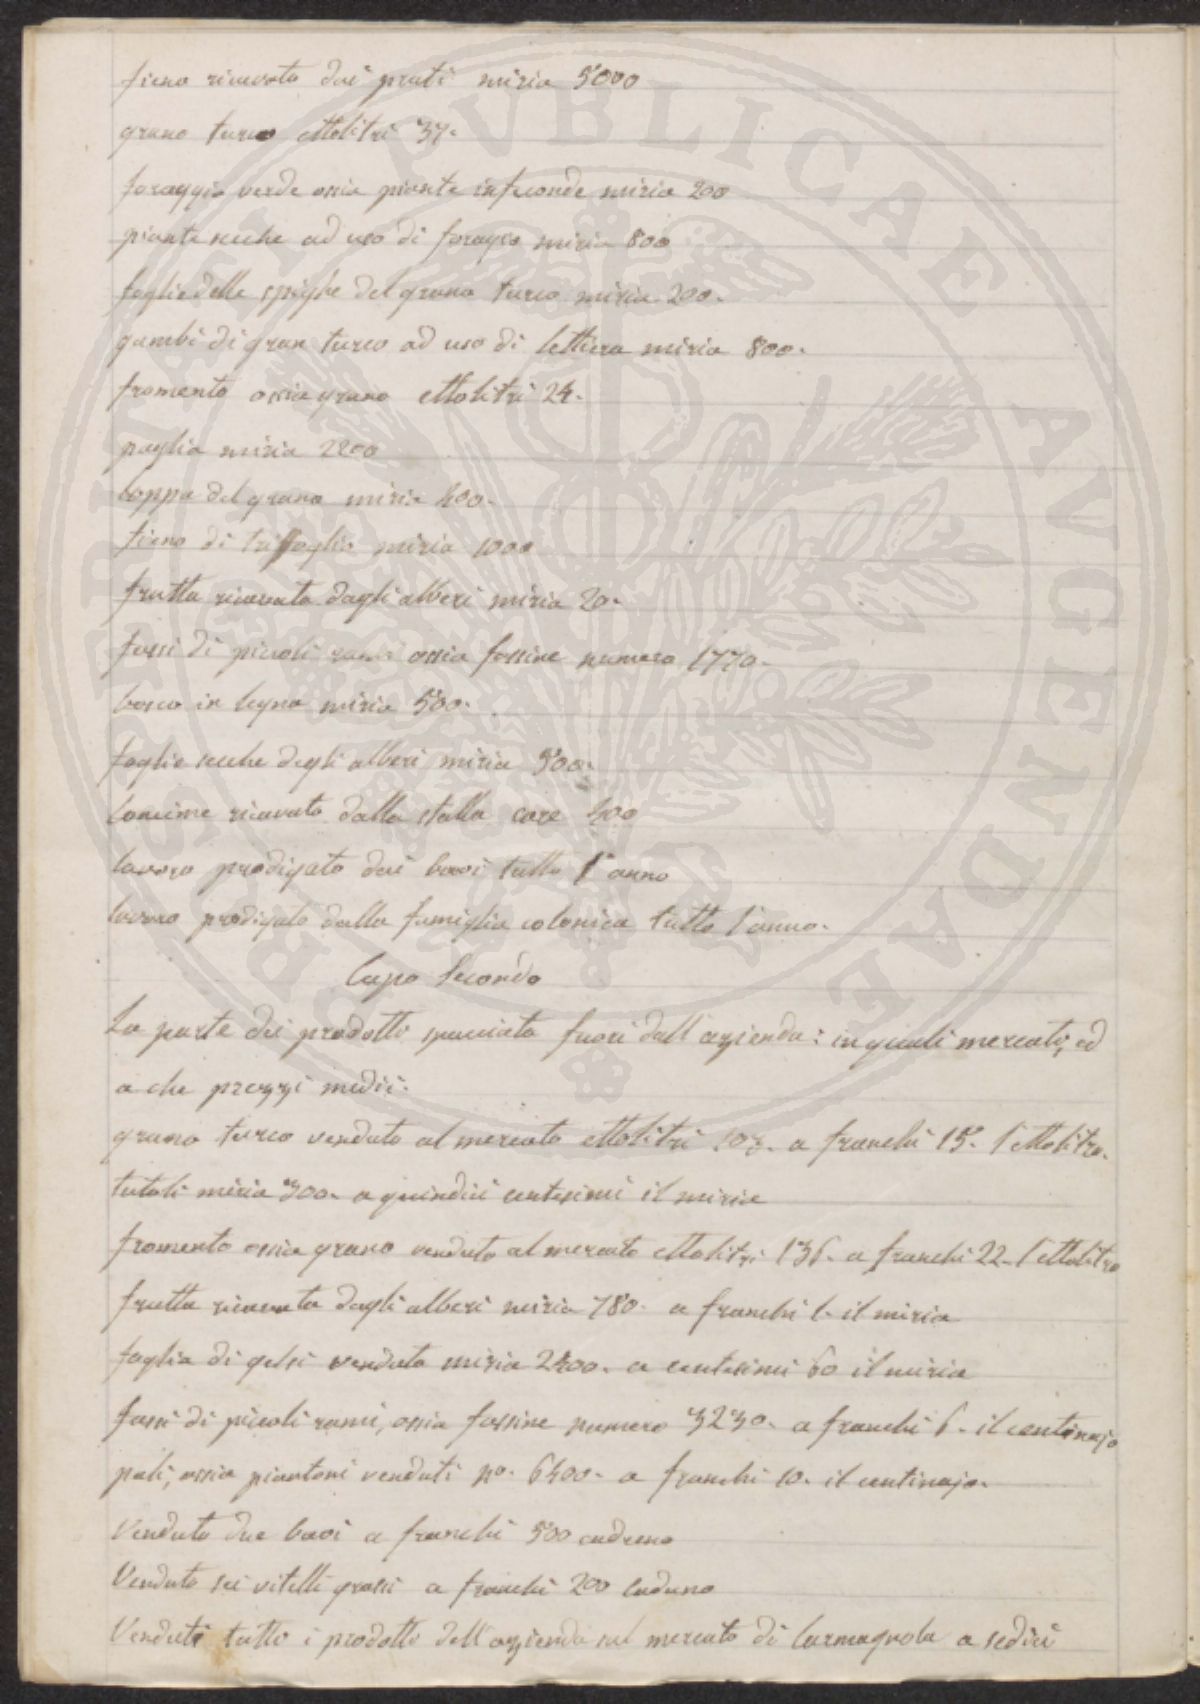 fieno ricavato dai prati miria 5000
grano turco ettolitri 37.
foraggio verde ossia piante infeconde miria 200
piante secche ad uso di foragio miria 800
foglie delle spighe del grano turco miria 200.
gambi di gran turco ad uso di lettiera miria 800.
fromento ossia grano ettolitri 24.
paglia miria 2200
loppa del grano miria 400.
fieno di trifoglio miria 1000
frutta ricavata dagli alberi miria 20.
fassi di piccoli rami ossia fassine numero 1770.
bosco in legna miria 500.
foglie secche degli alberi miria 300.
Concime ricavato dalla stalla care 400
lavoro prodigato dai bovi tutto l'anno
lavoro prodigato dalla famiglia colonica tutto l'anno.
Capo Secondo
La parte dei prodotti spacciata fuori dall'azienda: in quali mercati, ed
a che prezzi medii.
grano turco venduto al mercato ettolitri 103. a franchi 15. l'ettolitro.
tutoli miria 300. a quindici centesimi il miria
fromento ossia grano venduto al mercato ettolitri 136. a franchi 22. l'ettolitro
frutta ricavata dagli alberi miria 780. a franchi 1. il miria
foglia di gelsi venduta miria 2400. a centesimi 60 il miria
fassi di piccoli rami, ossia fassine numero 3230. a franchi 6. il centinajo
pali, ossia piantoni venduti no. 6400. a franchi 10. il centinajo.
Venduto due bovi a franchi 500 caduno
Venduto sei vitelli grassi a franchi 200 caduno
Venduti tutto i prodotti dell'azienda sul mercato di Carmagnola a sedici
PROSPERITATI PVBLICAE AVGENDAE